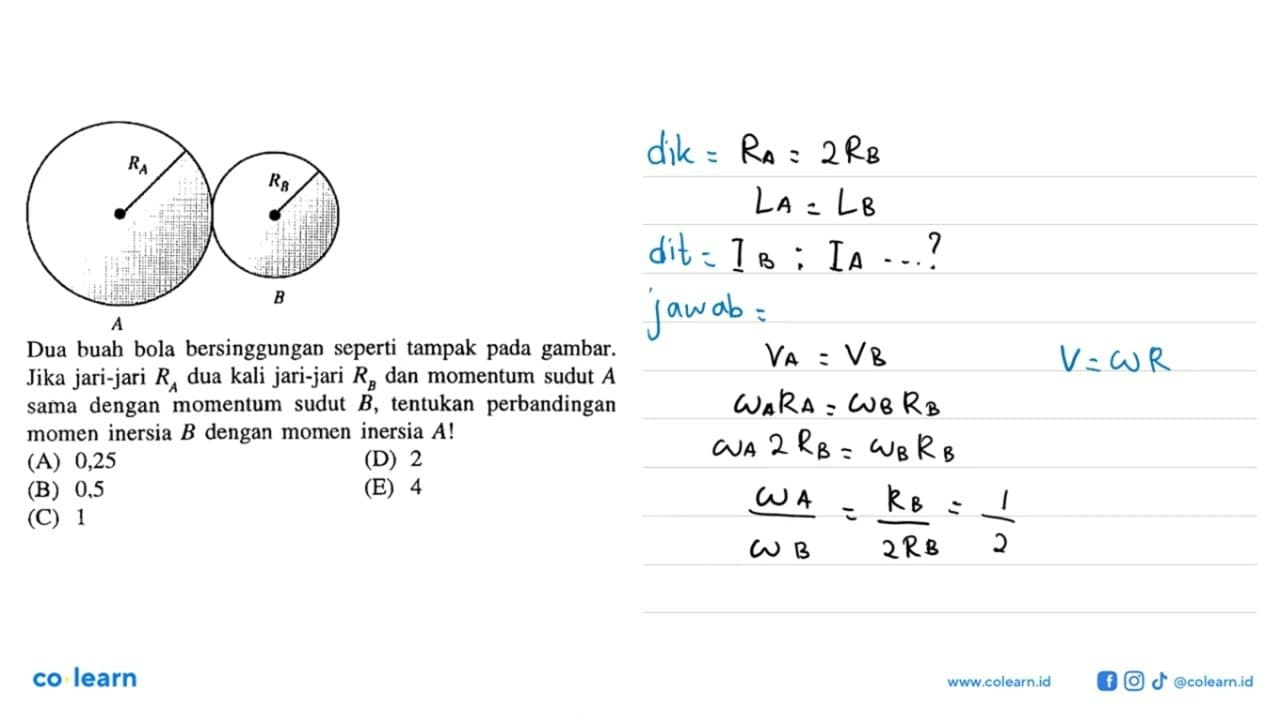 R_A
R_B
B
A
Dua buah bola bersinggungan seperti tampak pada gambar.
Jika jari-jari R_A dua kali jari-jari R_B dan momentum sudut A
sama dengan momentum sudut B, tentukan perbandingan
momen inersia B dengan momen inersia A!
(A) 0,25 (D) 2
(B) 0,5 (E) 4
(C) 1
dik = RA = 2RB
LA = LB
dit = IB : IA ...?
jawab =
VA = VB V = ωR
ωARA = ωBRB
ωA 2RB = ωBRB
ωA/ωB = RB/2RB = 1/2
co learn
www.colearn.id @colearn.id